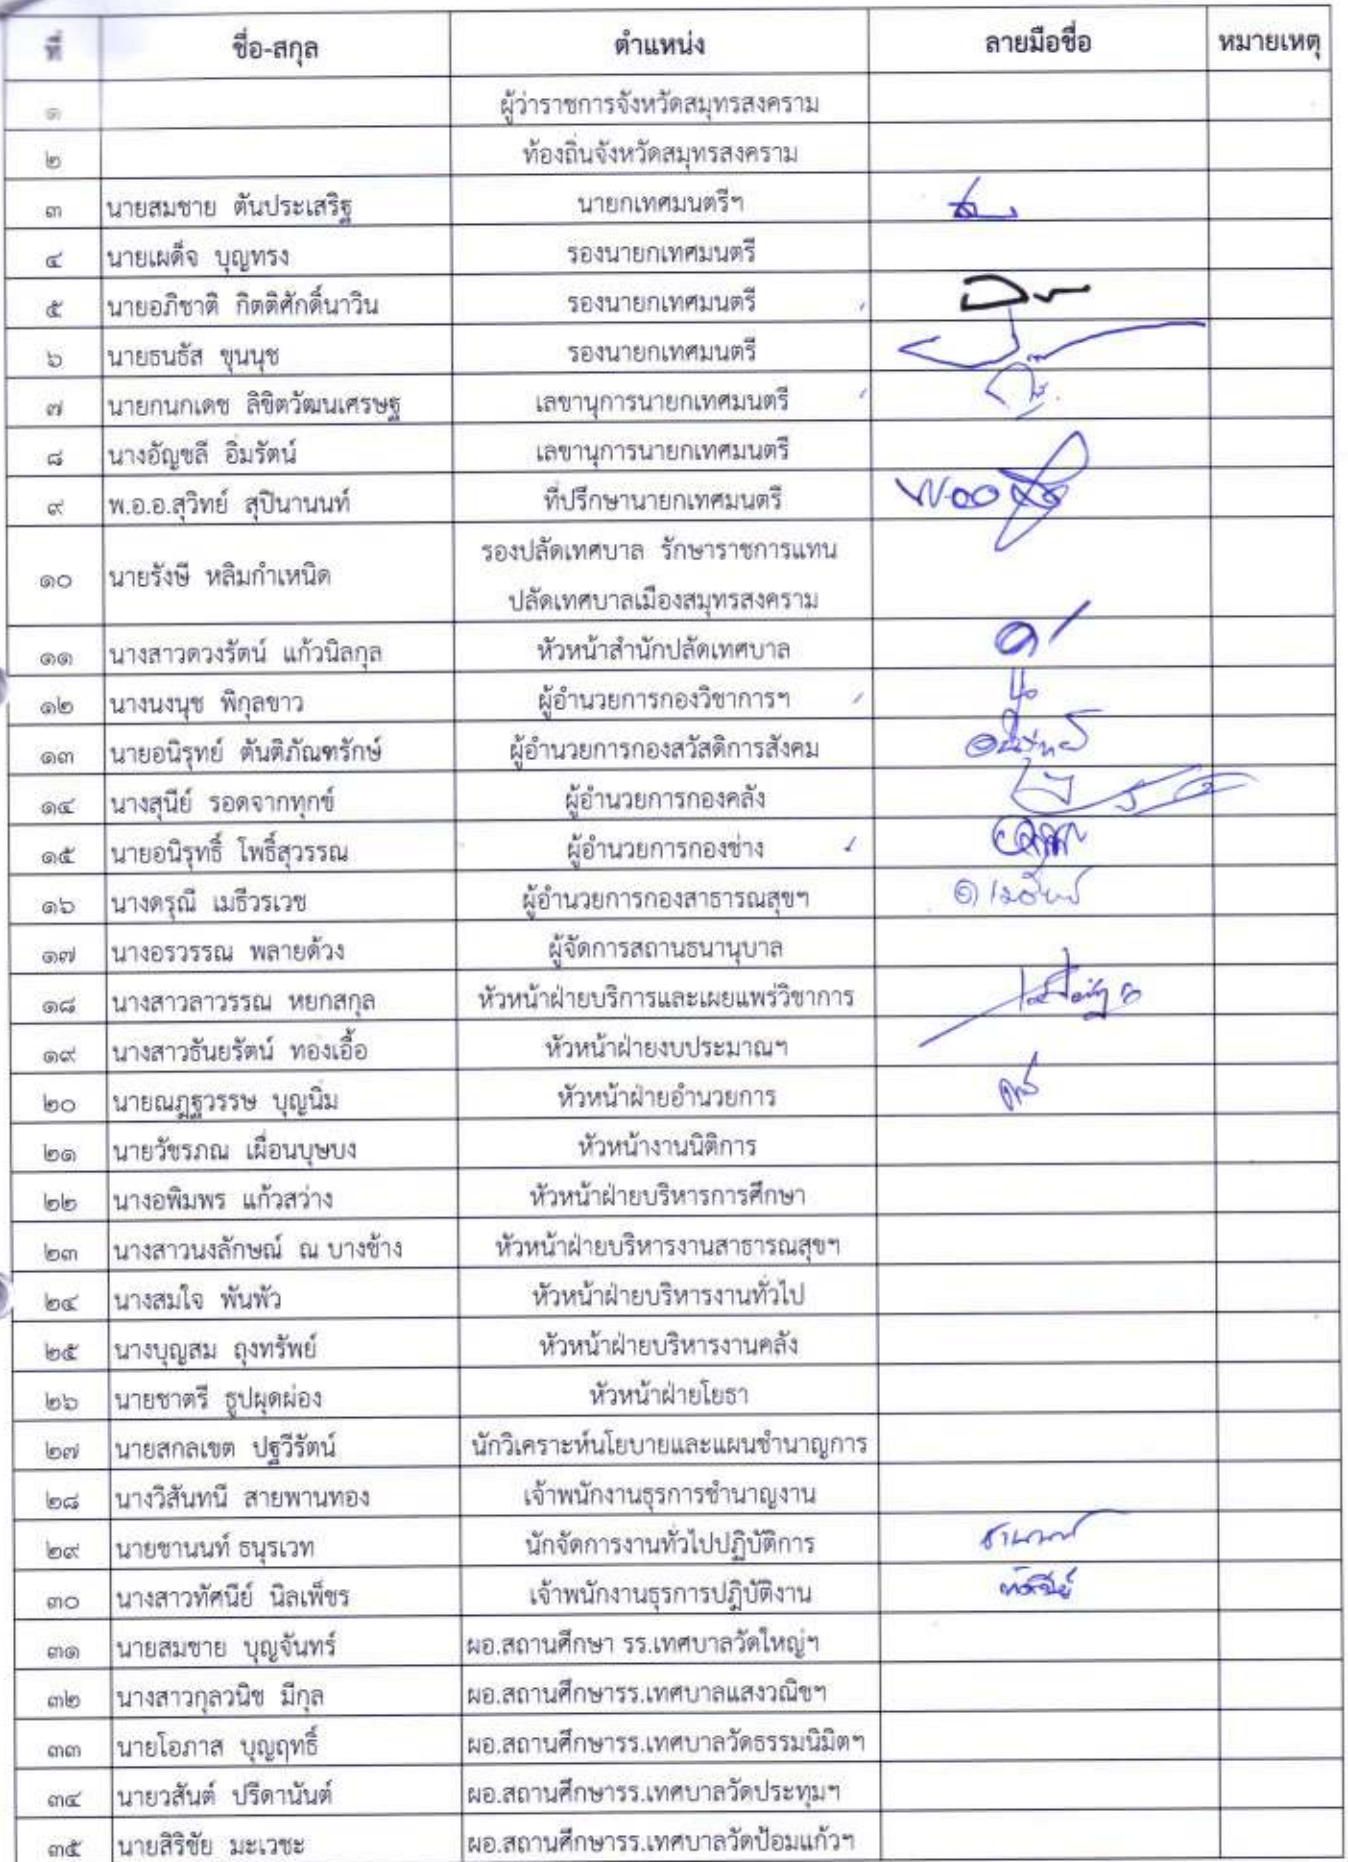 ที่ ชื่อ-สกุล ตำแหน่ง ลายมือชื่อ หมายเหตุ
๑ ผู้ว่าราชการจังหวัดสมุทรสงคราม
๒ ท้องถิ่นจังหวัดสมุทรสงคราม
๓ นายสมชาย ตันประเสริฐ นายกเทศมนตรีฯ
๔ นายเผด็จ บุญทรง รองนายกเทศมนตรี
๕ นายอภิชาติ กิตติศักดิ์นาวิน รองนายกเทศมนตรี
๖ นายธนธัส ขุนนุช รองนายกเทศมนตรี
๗ นายกนกเดช ลิขิตวัฒนเศรษฐ เลขานุการนายกเทศมนตรี
๘ นางอัญชลี อิ่มรัตน์ เลขานุการนายกเทศมนตรี
๙ พ.อ.อ.สุวิทย์ สุปินานนท์ ที่ปรึกษานายกเทศมนตรี
๑๐ นายรังษี หลิมกำเหนิด รองปลัดเทศบาล รักษาราชการแทน
ปลัดเทศบาลเมืองสมุทรสงคราม
๑๑ นางสาวดวงรัตน์ แก้วนิลกุล หัวหน้าสำนักปลัดเทศบาล
๑๒ นางนงนุช พิกุลขาว ผู้อำนวยการกองวิชาการฯ
๑๓ นายอนิรุทย์ ตันติภัณฑรักษ์ ผู้อำนวยการกองสวัสดิการสังคม
๑๔ นางสุนีย์ รอดจากทุกข์ ผู้อำนวยการกองคลัง
๑๕ นายอนิรุทธิ์ โพธิ์สุวรรณ ผู้อำนวยการกองช่าง
๑๖ นางดรุณี เมธีวรเวช ผู้อำนวยการกองสาธารณสุขฯ
๑๗ นางอรวรรณ พลายด้วง ผู้จัดการสถานธนานุบาล
๑๘ นางสาวลาวรรณ หยกสกุล หัวหน้าฝ่ายบริการและเผยแพร่วิชาการ
๑๙ นางสาวธันยรัตน์ ทองเอื้อ หัวหน้าฝ่ายงบประมาณฯ
๒๐ นายณฎฐวรรษ บุญนิ่ม หัวหน้าฝ่ายอำนวยการ
๒๑ นายวัชรภณ เผื่อนบุษบง หัวหน้างานนิติการ
๒๒ นางอพิมพร แก้วสว่าง หัวหน้าฝ่ายบริหารการศึกษา
๒๓ นางสาวนงลักษณ์ ณ บางช้าง หัวหน้าฝ่ายบริหารงานสาธารณสุขฯ
๒๔ นางสมใจ พันพัว หัวหน้าฝ่ายบริหารงานทั่วไป
๒๕ นางบุญสม ถุงทรัพย์ หัวหน้าฝ่ายบริหารงานคลัง
๒๖ นายชาตรี ธูปผุดผ่อง หัวหน้าฝ่ายโยธา
๒๗ นายสกลเขต ปฐวีรัตน์ นักวิเคราะห์นโยบายและแผนชำนาญการ
๒๘ นางวิสันทนี สายพานทอง เจ้าพนักงานธุรการชำนาญงาน
๒๙ นายชานนท์ ธนุรเวท นักจัดการงานทั่วไปปฏิบัติการ
๓๐ นางสาวทัศนีย์ นิลเพ็ชร เจ้าพนักงานธุรการปฏิบัติงาน ทัศนีย์
๓๑ นายสมชาย บุญจันทร์ ผอ.สถานศึกษา รร.เทศบาลวัดใหญ่ฯ
๓๒ นางสาวกุลวนิช มีกุล ผอ.สถานศึกษารร.เทศบาลแสงวณิชฯ
๓๓ นายโอภาส บุญฤทธิ์ ผอ.สถานศึกษารร.เทศบาลวัดธรรมนิมิตฯ
๓๔ นายวสันต์ ปรีดานันต์ ผอ.สถานศึกษารร.เทศบาลวัดประทุมฯ
๓๕ นายสิริชัย มะเวชะ ผอ.สถานศึกษารร.เทศบาลวัดป้อมแก้วฯ